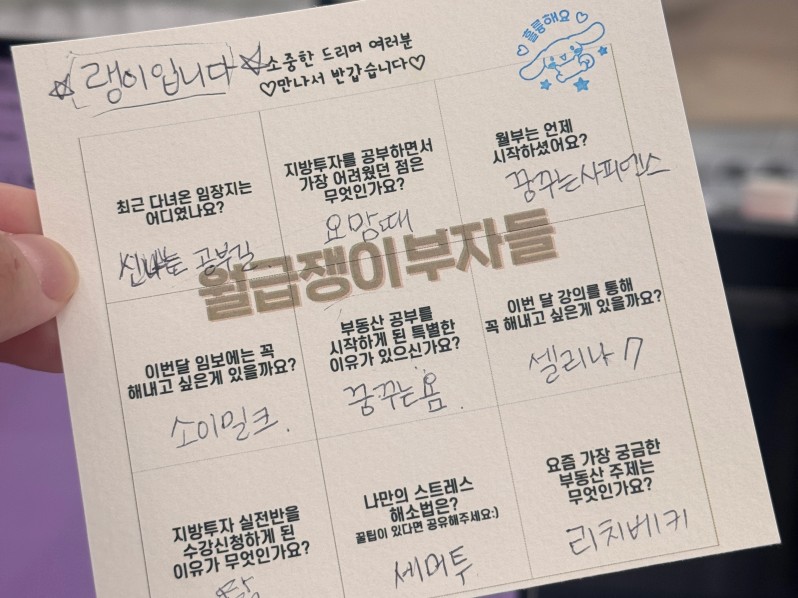 랭이입니다
소중한 드리머 여러분
♡만나서 반갑습니다♡
훌륭해요
최근 다녀온 임장지는
어디였나요?
신나는 공부길
지방투자를 공부하면서
가장 어려웠던 점은
무엇인가요?
요맘때
월부는 언제
시작하셨어요?
꿈꾸는사피엔스
월급쟁이부자들
이번달 임보에는 꼭
해내고 싶은게 있을까요?
소이밀크.
부동산 공부를
시작하게 된 특별한
이유가 있으신가요?
꿈꾸는욤.
이번 달 강의를 통해
꼭 해내고 싶은게 있을까요?
셀리나 7
지방투자 실전반을
수강신청하게 된
이유가 무엇인가요?
나만의 스트레스
해소법은?
꿀팁이 있다면 공유해주세요:)
세머투.
요즘 가장 궁금한
부동산 주제는
무엇인가요?
리치베키